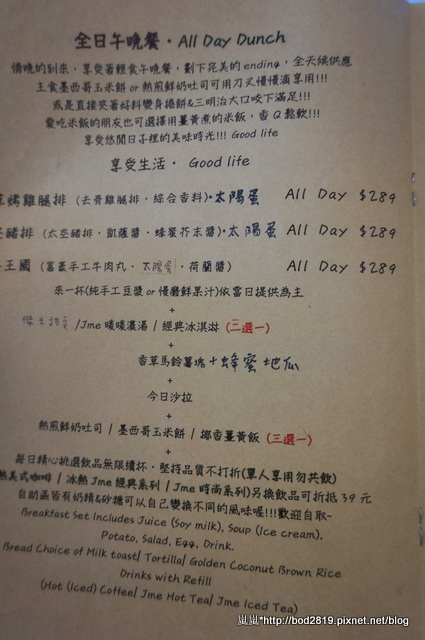 全日午晚餐·All Day Dunch
傍晚的到來，享受著輕食午晚餐，劃下完美的ending，全天候供應
主食墨西哥玉米餅 or 熱煎鮮奶吐司可用刀叉慢慢滴享用!!!
或是直接夾著好料變身捲餅&三明治大口咬下滿足!!!
愛吃米飯的朋友也可選擇用薑黃煮的米飯，香Q鬆軟!!!
享受悠閒日子裡的美味時光!!! Good life
享受生活· Good life
烤雞腿排 (去骨雞腿排·綜合香料)·太陽蛋 All Day $289
豬排 (太空豬排·凱薩醬·蜂蜜芥末醬)·太陽蛋 All Day $289
王國 (富豪手工牛肉丸·太陽蛋·荷蘭醬) All Day $289
來一杯(純手工豆漿 or 慢磨鮮果汁)依當日提供為主
+
/Jme 暖暖濃湯 / 經典冰淇淋 (二選一)
+
香草馬鈴薯塊+蜂蜜地瓜
+
今日沙拉
+
熱煎鮮奶吐司 / 墨西哥玉米餅 / 椰香薑黃飯 (三選一)
+
每日精心挑選飲品無限續杯·堅持品質不打折(單人享用勿共飲)
熱美式咖啡 / 冰熱 Jme 經典系列 / Jme 時尚系列)另換飲品可折抵 39 元
自助區皆有奶精&砂糖可以自己變換不同的風味喔!!!歡迎自取~
Breakfast Set Includes Juice (Soy milk), Soup (Ice cream),
Potato, Salad, Egg, Drink.
Bread Choice of Milk toast/ Tortilla/ Golden Coconut Brown Rice
Drinks with Refill
(Hot (Iced) Coffee/ Jme Hot Tea/ Jme Iced Tea)
嵐嵐*http://bod2819.pixnet.net/blog